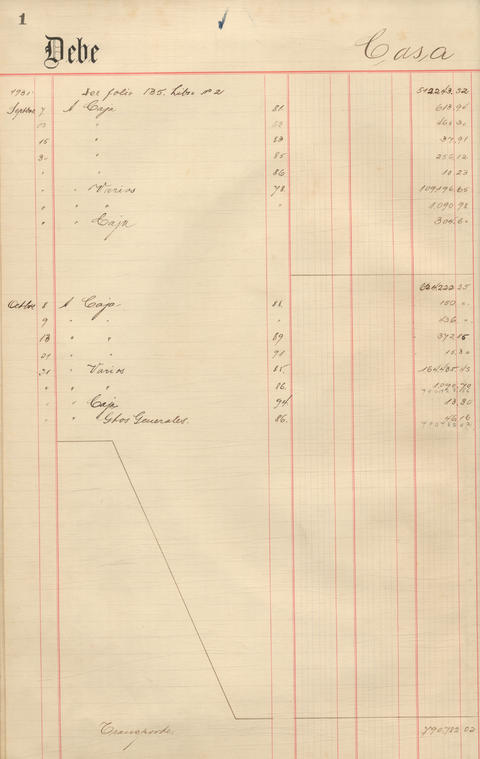 1
Debe Casa
1931 Del folio 135, Libro nº 2 512243,32
Septbre 7 A Caja 81 613,94
" 83
15 " 83 37,91
30 " 85 255,12
" " 86 10 23
" " Varios 78 109196,65
" " " " 1,090,98
" " Caja 304,60
624222 25
Octbre 8 A Caja 88 150 "
9 " " 436 "
13 " " 89 372 15
21 " " 91 15,30
31 " Varios 85 164,435,45
" " " 86 1090,70
" " Caja 94 13,30
" " Gtos Generales. 86. 46 16
Transporte. 790,782 02